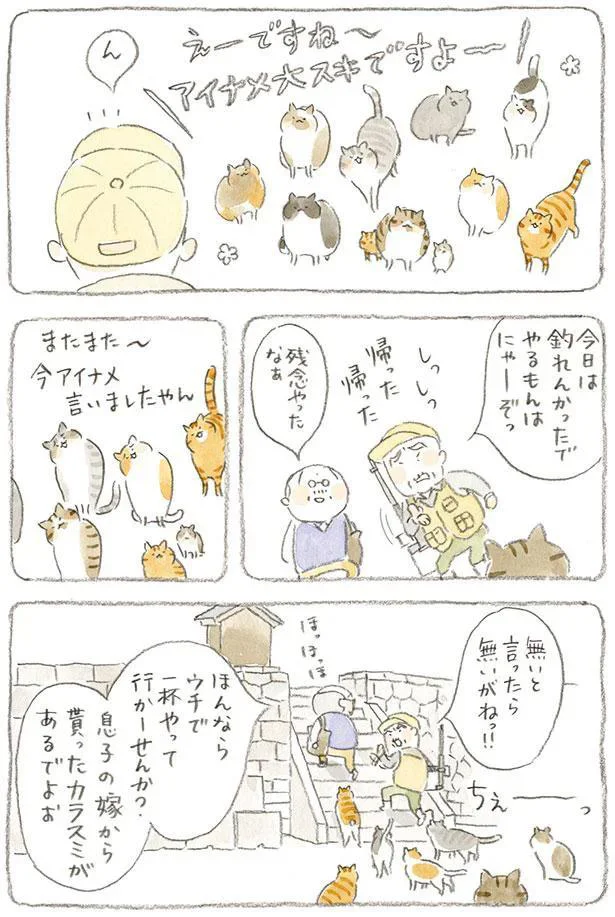 えーですね〜
アイナメ大スキですよー
ん
今日は
釣れんかったで
やるもんは
にゃーぞっ
しっしっ
帰った
帰った
残念やった
なぁ
またまた〜
今アイナメ
言いましたやん
無いと
言ったら
無いがねっ!!
ほっほっほ
ほんなら
ウチで
一杯やって
行かーせんか?
息子の嫁から
貰ったカラスミが
あるでよぉ
ちぇーーっ